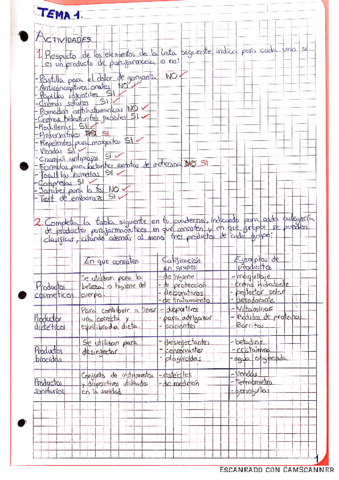 TEMA 1.
ACTIVIDADES
1. Respecto de los elementos de la lista siguiente, indica para cada uno si
es un producto de parafarmacia o no:
- Pastilla para el dolor de garganta NO
- Anticonceptivos orales NO
- Papillas infantiles SI
- Cremas solares SI
- Pomadas antihistamínicas NO
- Cremas hidratantes faciales SI
- Rodilleras SI
- Preservativos SI
- Repelentes para mosquitos SI
- Vendas SI
- Champú antipiojos SI
- Fórmulas para lactantes exentas de lactosa NO SI
- Toallitas húmedas SI
- Compresas SI
- Jarabes para la tos NO
- Test de embarazo SI
2. Completa la tabla siguiente en tu cuaderno, indicando para cada categoría
de productos parafarmacéuticos en qué consisten y en qué grupos se pueden
clasificar, citando además al menos tres productos de cada grupo:
En que consisten
Calificación en grupos
Ejemplos de productos
Productos cosméticos
Se utilizan para la belleza o higiene del cuerpo.
- de higiene
- de protección
- decorativos
- de tratamiento
- maquillaje
- crema hidratante
- protector solar
- desodorante
Productos dietéticos
Para contribuir a llevar una correcta y equilibrada dieta.
- deportivos
- para adelgazar
- Vitaminas
- Batidos de proteínas
- Barritas
Productos biocidas
Se utilizan para desinfectar
- desinfectantes
- conservantes
- plaguicidas
- betadine
- cristalmina
- agua oxigenada
Productos sanitarios
Conjunto de instrumentos y dispositivos utilizados en la sanidad
- estériles
- de medición
- Vendas
- Termómetro
1
ESCANEADO CON CAMSCANNER